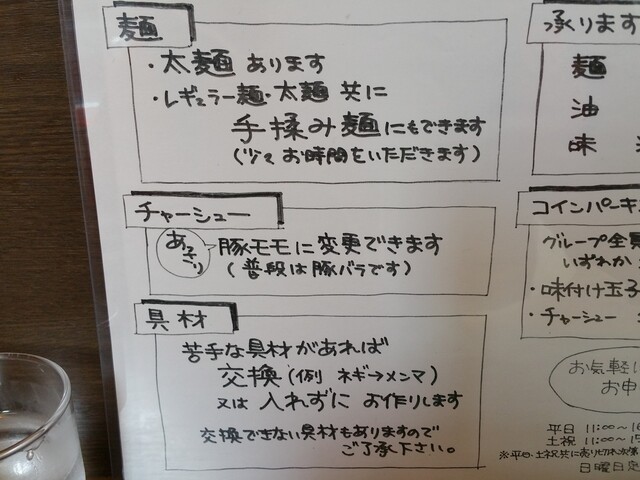 麺
・太麺あります
・レギュラー麺・太麺 共に
手揉み麺にもできます
(少々お時間をいただきます)
チャーシュー
あっさり
豚モモに変更できます
(普段は豚バラです)
具材
苦手な具材があれば
交換(例 ネギ→メンマ)
又は入れずにお作りします
交換できない具材もありますので
ご了承下さい。
承ります
麺
油
味
コインパーキ
グループ全員
いずれか
・味付け玉子
・チャーシュー
お気軽に
お申
平日 11:00〜
土祝 11:00〜
※平日・土祝共に売り切れ次第
日曜日定